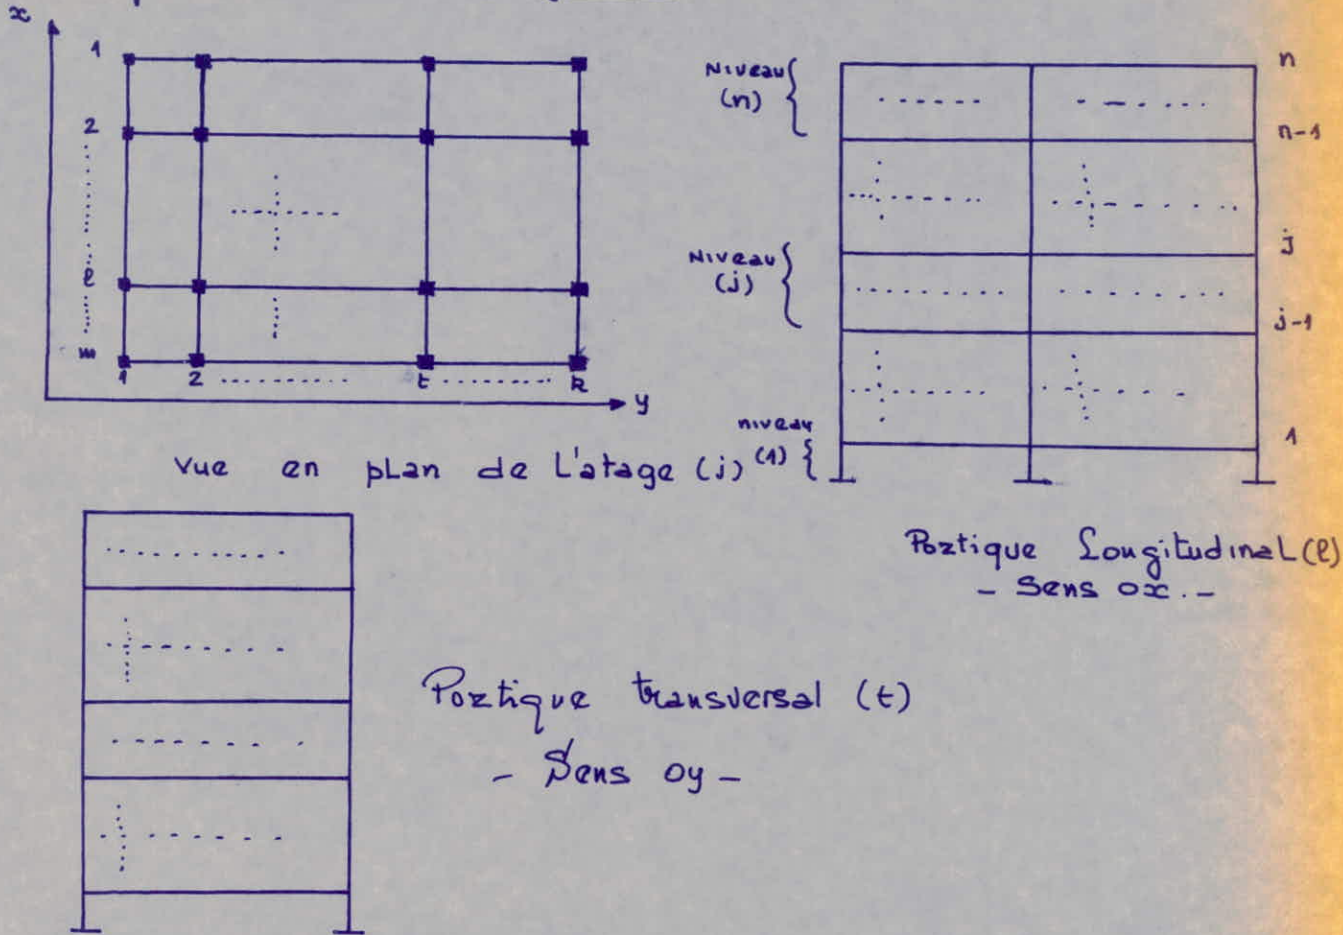 x
1
2
l
m
1 2 t k
y
Vue en plan de L'atage (j)
Niveau
(n)
Niveau
(j)
niveau
(1)
n
n-1
j
j-1
1
Portique Longitudinal (l)
- Sens ox. -
Portique transversal (t)
- Sens oy -